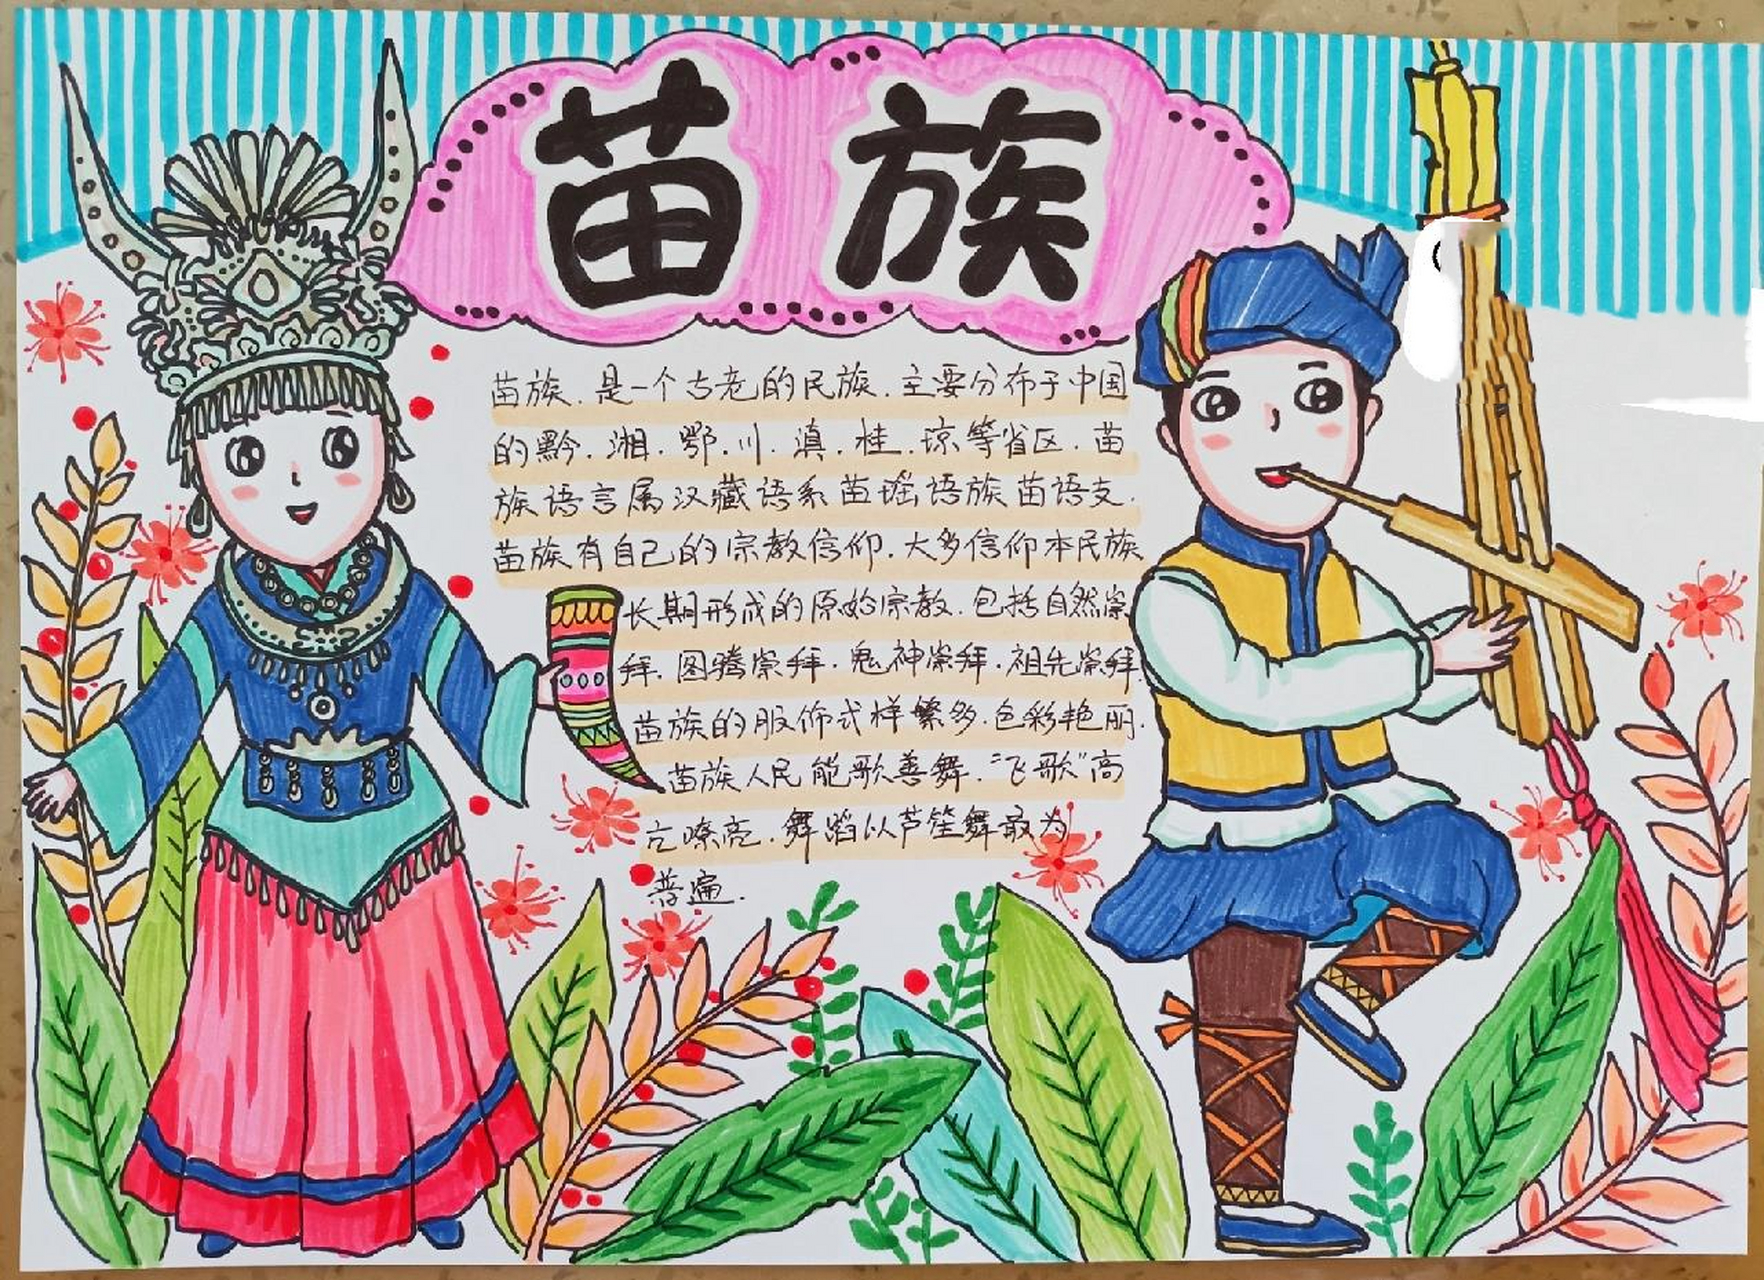 苗族
苗族.是一个古老的民族.主要分布于中国
的黔.湘.鄂.川.滇.桂.琼等省区.苗
族语言属汉藏语系苗瑶语族苗语支.
苗族有自己的宗教信仰.大多信仰本民族
长期形成的原始宗教.包括自然崇
拜.图腾崇拜.鬼神崇拜.祖先崇拜.
苗族的服饰式样繁多.色彩艳丽.
苗族人民能歌善舞."飞歌"高
亢嘹亮.舞蹈以芦笙舞最为
普遍.